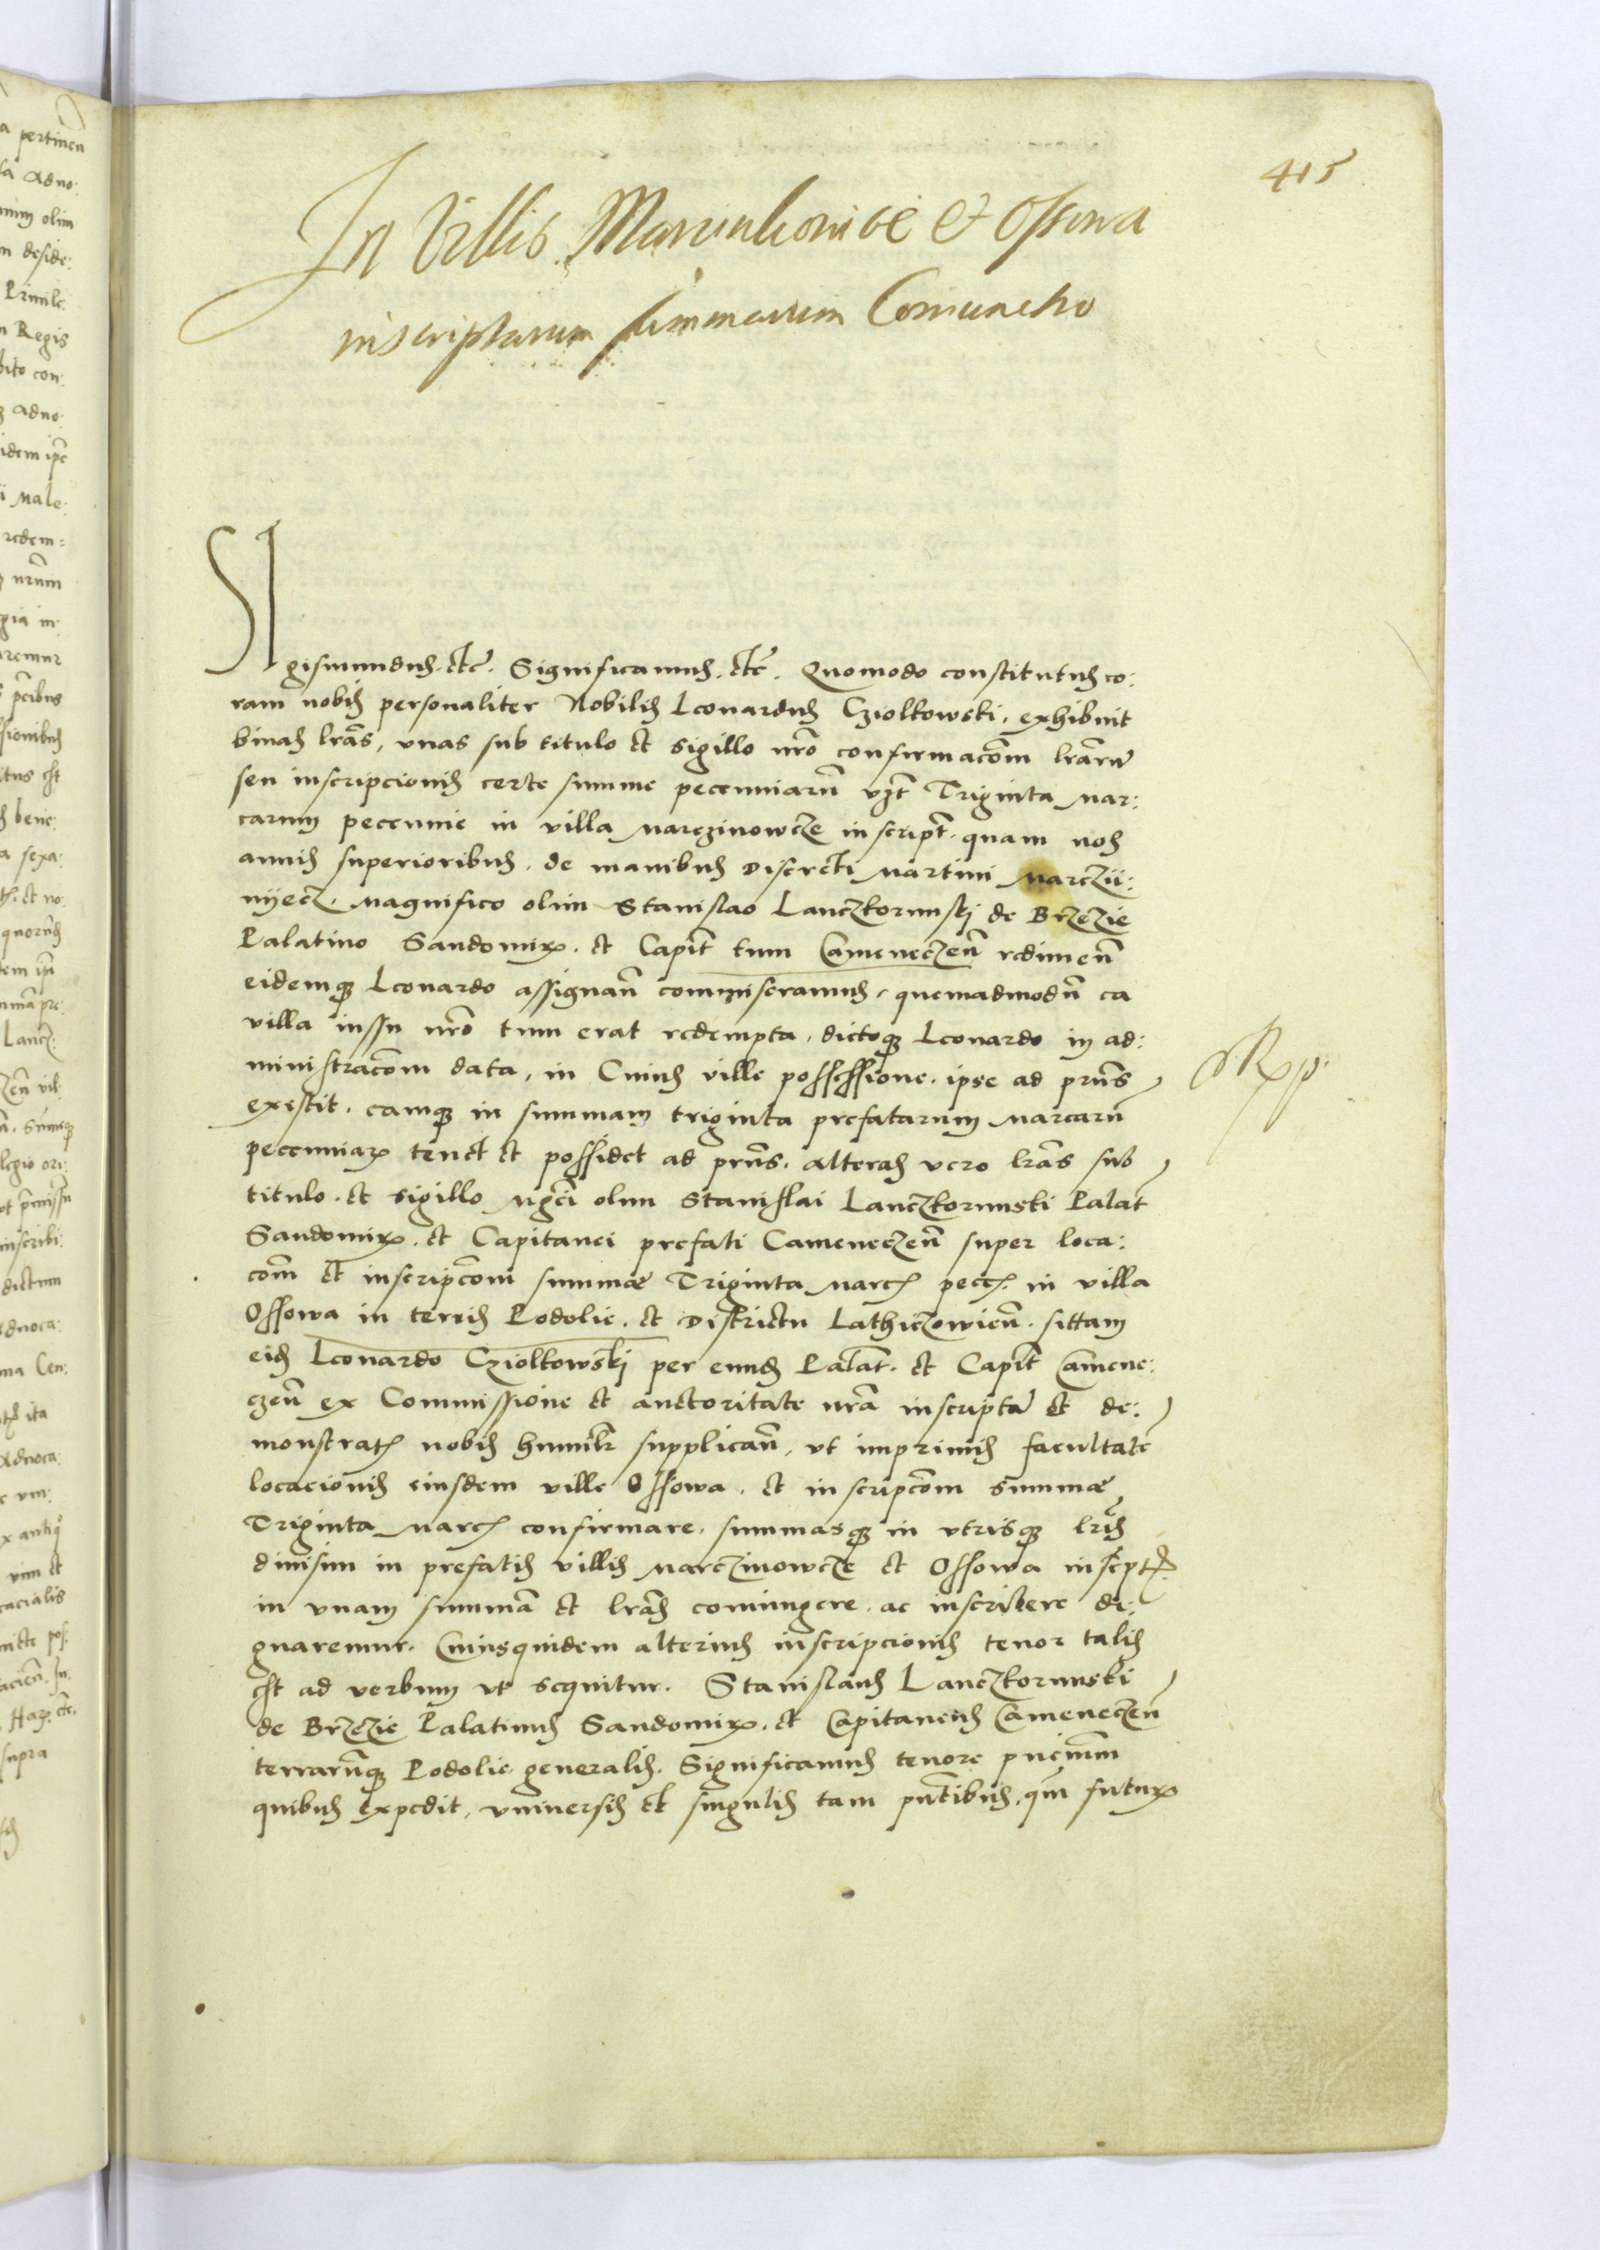 415
In Villis Marcinkowice & Ossowa
inscriptarum summarum Coniunctio
SIgismundus. etc. Significamus. etc. Quomodo constitutus co:
ram nobis personaliter Nobilis Leonardus Cziolkowski, exhibuit
binas lras, vnas sub titulo et sigillo nro confirmacom lrarum
seu inscripcionis certe summe pecuniarum vzt Triginta Mar:
carum pecunie in villa Marczinowcze inscript. quam nos
annis superioribus. de manibus Discreti Martini Marczii:
niyecz. Magnifico olim Stanislao Lanczkorunski de Brzezie
Palatino Sandomir. et Capit tum Cameneczen redimen
eidemque Leonardo assignan commiseramus. quemadmodum ea
villa iussu nro tum erat redempta. dictoque Leonardo in ad:
ministracom data, in Cuius ville possessione. ipse ad prns
existit. eamque in summam triginta prefatarum Marcarum
pecuniar tenet et possidet ad prns. alteras vero lras sub
titulo. et sigillo Mgci olim Stanislai Lanczkorunski Palat
Sandomir. et Capitanei prefati Cameneczen super loca:
com et inscripcom summe Triginta Marc pecc. in villa
Ossowa in terris Podolie. et Districtu Lathiczowien. sittam
eid Leonardo Cziolkowski per eund Palat. et Capit Camene:
czen ex Commissione et auctoritate nra inscripta et de:
monstrat nobis humilr supplican, vt imprimis facultate
locacionis eiusdem ville Ossowa. et inscripcom summe
Triginta Marc confirmare. summasque in vtrisque lris
diuisim in prefatis villis Marczinowcze et Ossowa inscpt
in vnam summa et lras coniungere. ac inscribere di:
gnaremur. Cuiusquidem alterius inscripcionis tenor talis
est ad verbum vt sequitur. Stanislaus Lanczkorunski
de Brzezie Palatinus Sandomir. et Capitaneus Cameneczen
terrarumque Podolie generalis. Significamus tenore pncium
quibus expedit, vniversis et singulis tam pntibus. qm futur